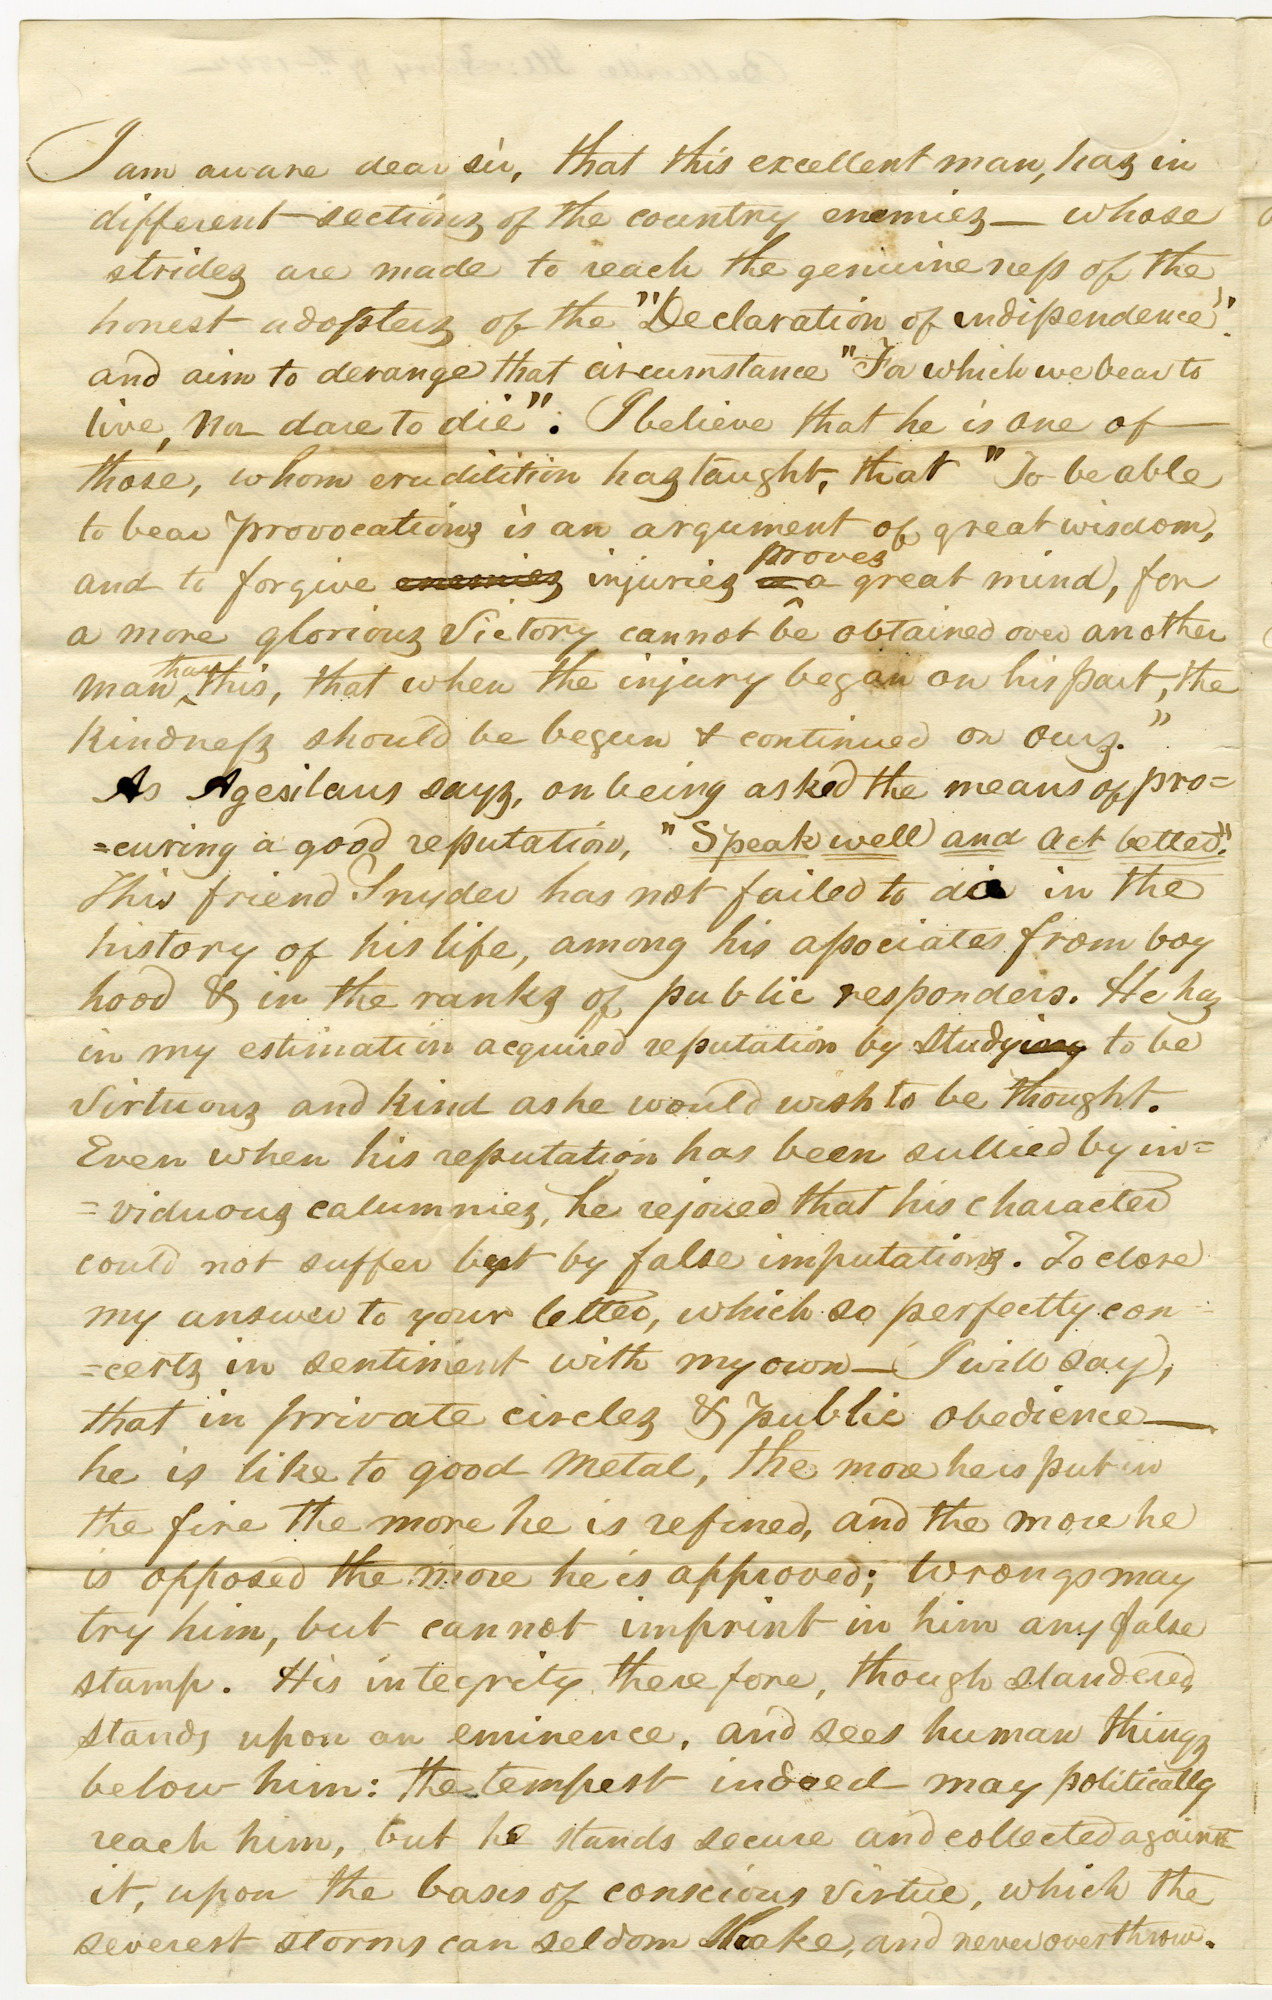 I am aware dear sir, that this excellent man, has in
different sections of the country enemies — whose
strides are made to reach the genuineness of the
honest adopters of the "Declaration of indispendence".
and aim to derange that circumstance "For which we bear to
live, nor dare to die": I believe that he is one of —
those, whom erudilition has taught, that "To be able
to bear provocations is an argument of great wisdom,
and to forgive enemies injuries proves a great mind, for
a more glorious Victory cannot be obtained over another
man than this, that when the injury began on his part, the
kindness should be begun & continued on ours."
As Agesilaus says, on being asked the means of pro=
=curing a good reputation, "Speak well and act better".
This friend Snyder has not failed to do in the
history of his life, among his associates from boy
hood & in the ranks of public responders. He has
in my estimation acquired reputation by studying to be
Virtuous and kind as he would wish to be thought.
Even when his reputation has been sullied by in=
=viduous calumnies, he rejoiced that his character
could not suffer but by false imputations. To close
my answer to your letter, which so perfectly con=
=certs in sentiment with my own — (I will say),
that in private circles & public obedience —
he is like to good metal, the more he is put in
the fire the more he is refined, and the more he
is opposed the more he is approved; wrongs may
try him, but cannot imprint in him any false
stamp. His integrity therefore, though slandered,
stands upon an eminence, and sees human things
below him: the tempest indeed may politically
reach him, but he stands secure and collected against
it, upon the basis of conscious virtue, which the
severest storms can seldom shake, and never overthrow.